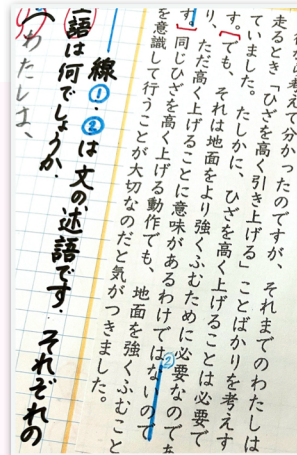 考えて分かったのですが、それまでのわたしは
走るとき「ひざを高く引き上げる」ことばかりを考えす
ていました。たしかに、ひざを高く上げることは必要で
す。でも、それは地面をより強くふむために必要なのであ
り、ただ高く上げることに意味があるわけではないので
す。同じひざを高く上げる動作でも、地面を強くふむこと
を意識して行うことが大切なのだと気がつきました。
②
線①・②は文の述語です。それぞれの
主語は何でしょうか。
(わたしは、